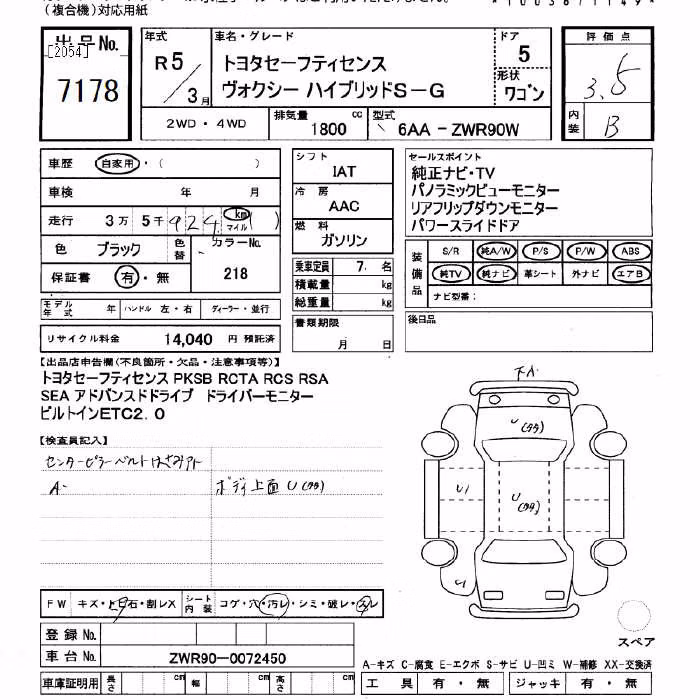 (複合機)対応用紙
出品No.
[2054]
7178
年式
R5/3月
車名・グレード
トヨタセーフティセンス
ヴォクシー ハイブリッドS-G
ドア
5
形状
ワゴン
評価点
3.5
内装
B
2WD・4WD
排気量
1800 cc
型式
6AA-ZWR90W
車歴
自家用・( )
車検 年 月
走行 3万 5千 924 km マイル ( )
色 ブラック
色替
カラーNo.
218
保証書 有・無
シフト
IAT
冷房
AAC
燃料
ガソリン
乗車定員 7. 名
積載量 kg
総重量 kg
セールスポイント
純正ナビ・TV
パノラミックビューモニター
リアフリップダウンモニター
パワースライドドア
装備品
S/R 純A/W P/S P/W ABS
純TV 純ナビ 革シート 外ナビ エアB
ナビ型番:
モデル年式 年 ハンドル 左・右 ディーラー・並行
リサイクル料金 14,040 円 預託済
書類期限
月 日
後日品
【出品店申告欄(不良箇所・欠品・注意事項等)】
トヨタセーフティセンス PKSB RCTA RCS RSA
SEA アドバンスドドライブ ドライバーモニター
ビルトインETC2.0
【検査員記入】
センターピラーベルトはさみアト
A-
ボディ上面U
下A
U
U1
U
U
FW キズ・トビ石・割レX
シート内装 コゲ・穴・汚レ・シミ・破レ・スレ
登録No.
車台No. ZWR90-0072450
スペア
A-キズ C-腐食 E-エクボ S-サビ U-凹ミ W-補修 XX-交換済
車庫証明用 長さ cm 幅 cm 高さ cm
工具 有・無 ジャッキ 有・無